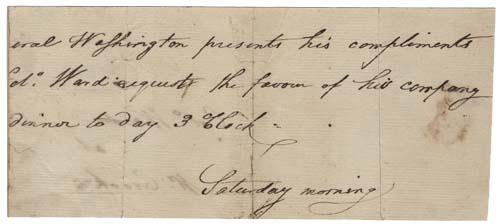 eral Washington presents his compliments
Col.º Ward requests the favour of his company
dinner to day 3 O'Clock
Saturday morning